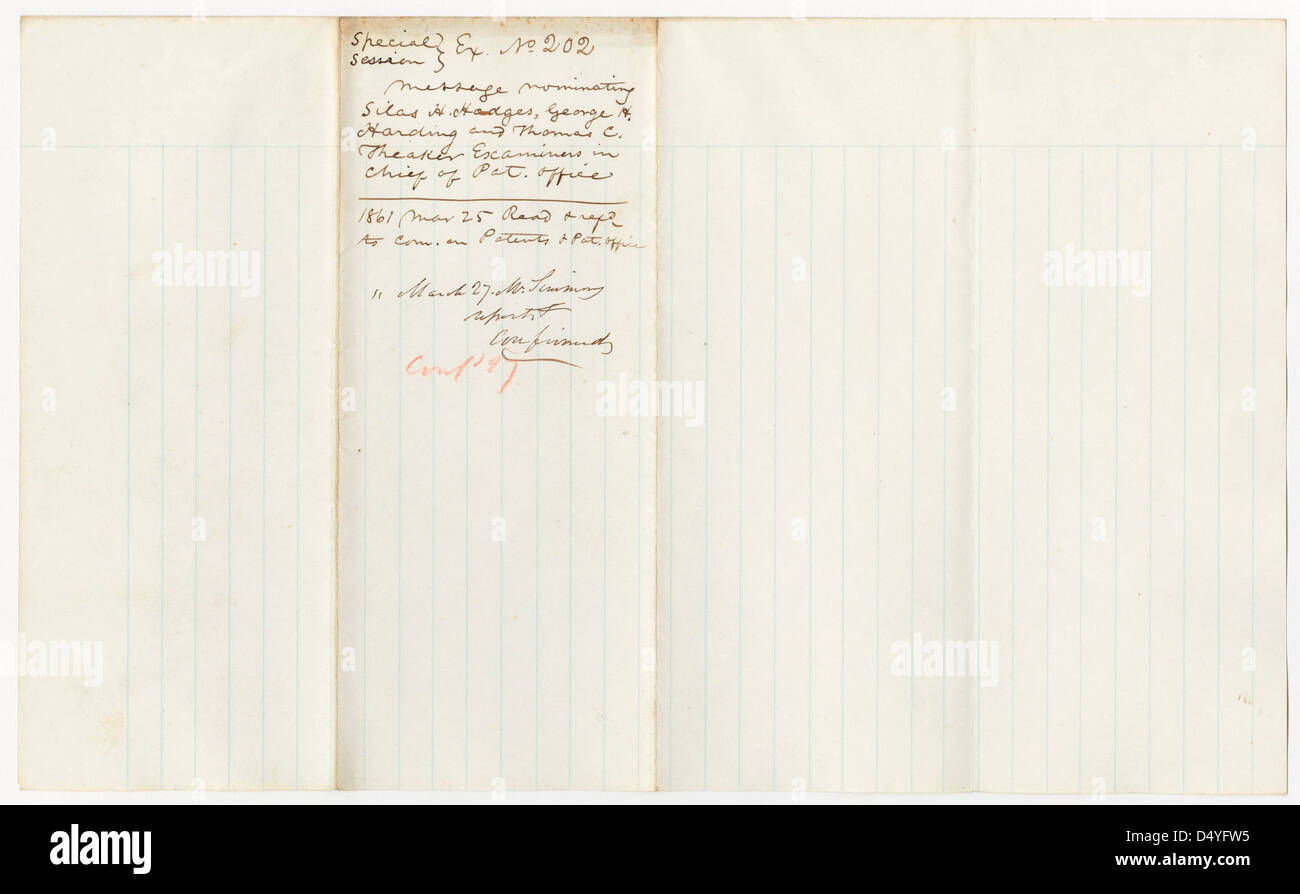 Special } Ex. No 202
Session }
Message nominating
Silas H. Hodges, George H.
Harding and Thomas C.
Theaker Examiners in
Chief of Pat. Office
1861 Mar 25 Read & refd
to Com. on Patents & Pat. office
" March 27. Mr. Simmons
reports
Confirmed
Conf'd 27
alamy
alamy
alamy
alamy
alamy
alamy
Image ID: D4YFW5
www.alamy.com